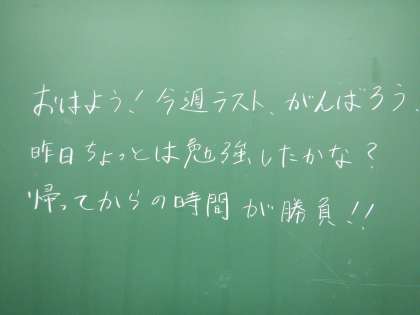 おはよう！今週ラスト、がんばろう。
昨日ちょっとは勉強したかな？
帰ってからの時間が勝負！！